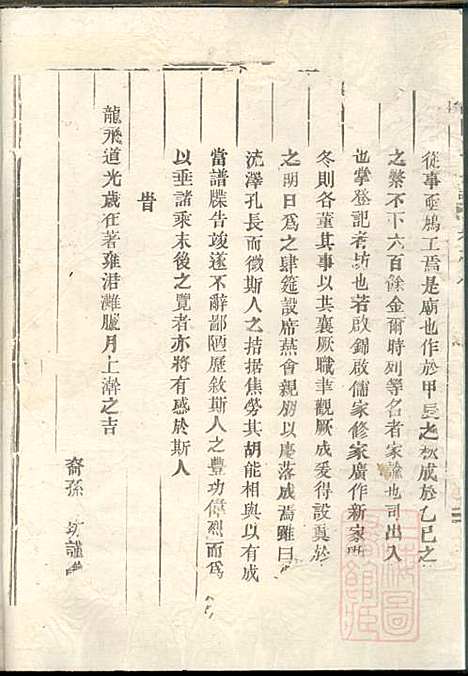 從事而鳩工焉是廟也作於甲辰之秋成於乙巳之
冬則各董其事以其襄厥職聿觀厥成爰得設奠於
之繁不下六百餘金爾時列等名者家諭也司出入
也掌登記者坊也若啟錦啟儒家修家廣作新家
之明日為之肆筵設席燕會親朋以慶落成焉雖曰
流澤孔長而微斯人之拮据焦勞其胡能相與以有成
當譜牒告竣遂不辭鄙陋歷敘斯人之豐功偉烈而為
以垂諸乘末後之覽者亦將有感於斯人
旹
龍飛道光歲在著雍涒灘臘月上澣之吉
裔孫 坊謹